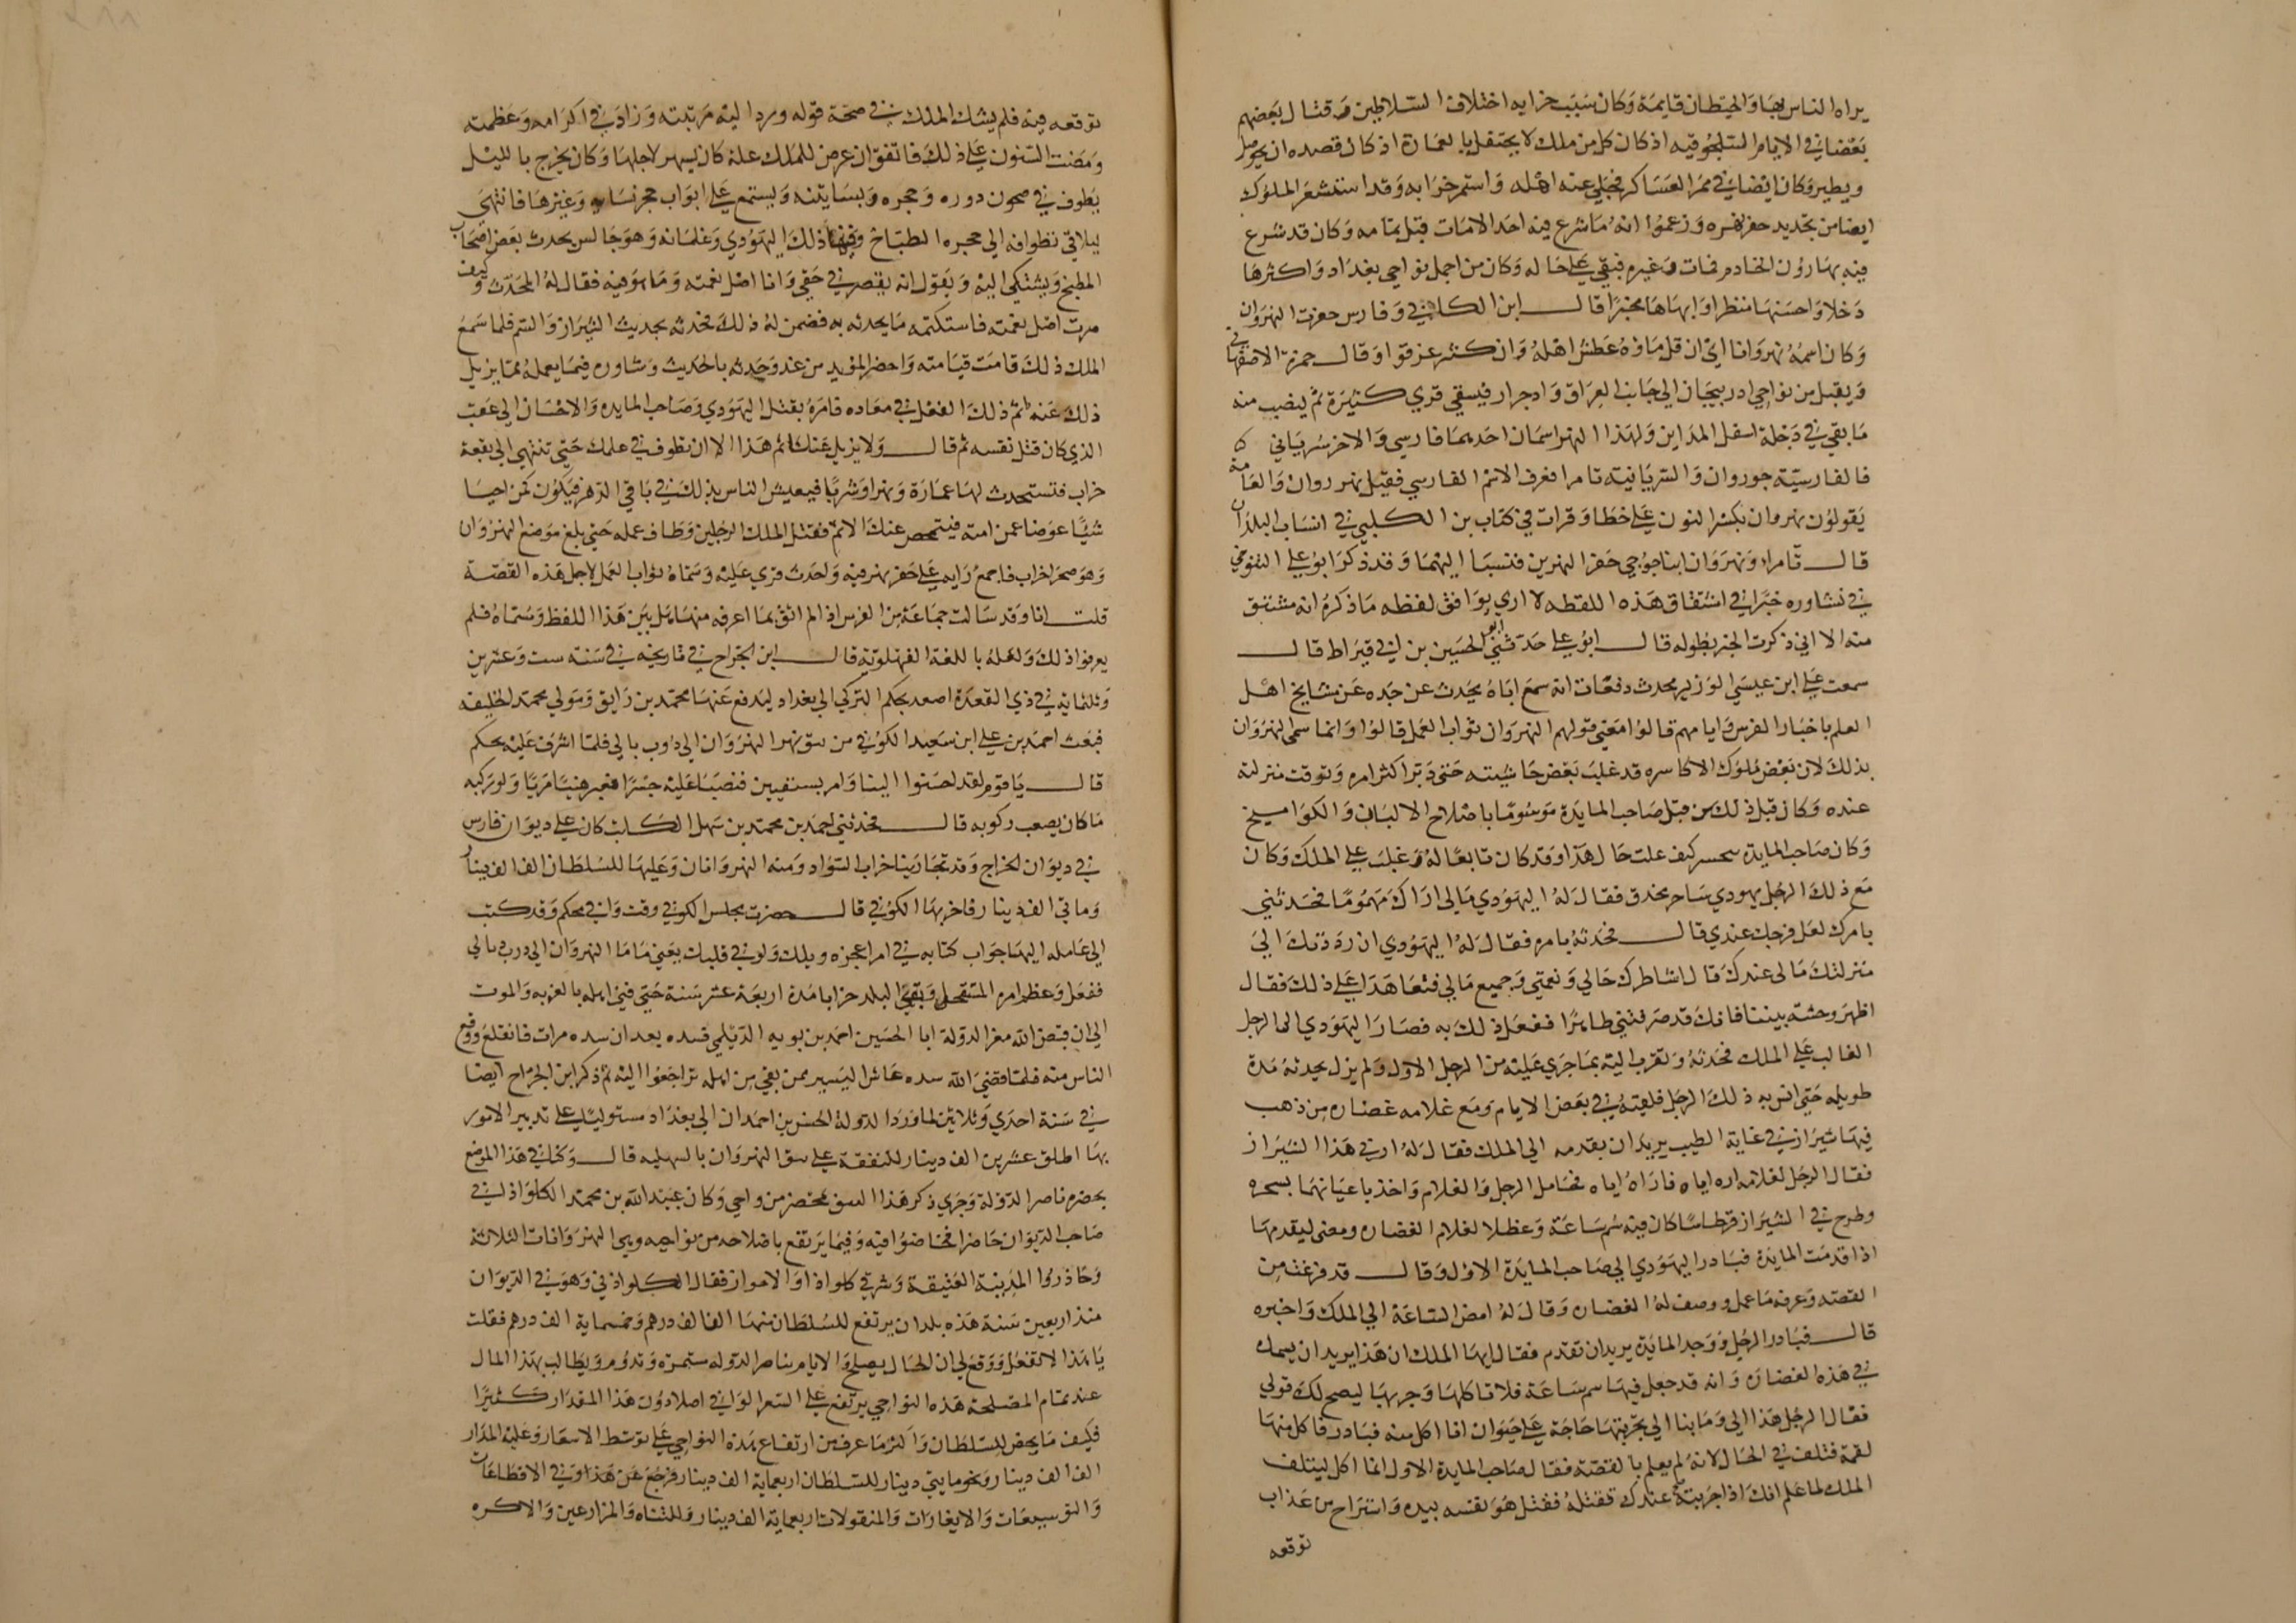 يراه الناس بها والحيطان قايمة وكان سبب خرابه اختلاف السلاطين وقتال بعضهم
بعضا في الايام السلجوقيه اذ كان كل من ملك لا يحتفل بالعمارة اذ كان قصده ان يحوصل
ويطير وكان ايضا في ممر العساكر فجلى عنه اهله واستمر خرابه وقد استشعر الملوك
ايضا من تجديد حفر نهره وزعموا انه ما شرع فيه احد الا مات قبل تمامه وكان قد شرع
فيه بهاروز الخادم فمات وغيره فبقي على حاله وكان من اجمل نواحي بغداد واكثرها
دخلا واحسنها منظرا وابهاها مخبرا قال ابن الكلبي وفارس حفرت النهروان
وكان اسمه نهروانا اي ان قل ماؤه عطش اهله وان كثر غرقوا وقال حمزة الاصفهاني
ويقبل من نواحي ادربيجان الى جانب العراق وادجرار فيسقي قري كثيرة ثم ينصب منه
ما بقي في دجلة اسفل المداين ولهذا النهر اسمان احدهما فارسي والاخر سرياني
فالفارسيته جوروان والسريانيته تامرا فعرف الاسم الفارسي فقيل نهروان والعامة
يقولون نهروان بكسر النون على خطا وقرات في كتاب بن الكلبي في انساب البلدان
قال تامرا ونهروان ابنا جوخي حفرا النهرين فنسبا اليهما وقد ذكر ابو علي التنوخي
في نشاوره خبرا في اشتقاق هذه اللفظه لا اري يوافق لفظه ما ذكره انه مشتق
منه الا اني ذكرت الخبر بطوله قال ابو علي حدثني ابو الحسين بن ابي قيراط قال
سمعت علي ابن عيسى الوزير يحدث دفعات انه سمع اباه يحدث عن جده عن مشايخ اهل
العلم باخبار الفرس وايامهم قالوا معني قولهم النهروان ثواب العمل قالوا وانما سمي النهروان
بذلك لان بعض ملوك الاكاسره قد غلب بعض حاشيته حتى دبر اكثر امره وترقت منزلته
عنده وكان قبل ذلك من قبل صاحب المايدة موسوما باصلاح الالبان والكواميخ
وكان صاحب المايدة يتحسر كيف علت حال هذا وقد كان تابعا له وغلب على الملك وكان
مع ذلك الرجل يهودي ساحر مخدق فقال له اليهودي مالي اراك مهموما فحدثني
بامرك لعل فرجك عندي قال فحدثه بامره فقال له اليهودي ان رددتك الى
منزلتك مالى عندك قال اشاطرك حالي ونعمتي وجميع مالي فتعاهدا على ذلك فقال
اظهر وحشة بيننا فانك قد صرفتني ظاهرا ففعل ذلك به فصار اليهودي الى الرجل
الغالب على الملك فحدثه وتقرب اليه بما جري عليه من الرجل الاول ولم يزل يحدثه مدة
طويله حتى انس به ذلك الرجل فلقيه في بعض الايام ومع غلامه غضاره من ذهب
فيها شيراز في غاية الطيب يريد ان يقدمه الي الملك فقال له ارني هذا الشيراز
فقال الرجل لغلامه اره اياه فاراه اياه فخامل الرجل والغلام واخذ باعيانهما بسحره
وطرح في الشيراز قرطاسا كان فيه سم ساعة وغطى الغلام الغضاره ومضى ليقدمها
اذا قدمت المايدة فبادر اليهودي الى صاحب المايدة الاول وقال قد فرغت من
القصه وعرفه ما عمل ووصف له الغضاره وقال له امض الساعة الي الملك واخبره
قال فبادر الرجل ووجد المايدة يريد ان تقدم فقال ايها الملك ان هذا يريد ان يسمك
في هذه الغضارة وانه قد جعل فيها سم ساعة فلا تاكلها وجربها ليصح لك قولي
فقال الرجل هذا الي وما بنا الي تجربتها حاجة على حيوان انا اكل منه فبادر فاكل منها
لقمة فتلف في الحال لانه لم يعلم بالقصة فقال صاحب المايدة الاول انما اكل ليتلف
الملك لما علم انك اذا جربته عندك تقتله فقتل هو نفسه بيده واستراح من عذاب
توقعه
توقعه فيه فلم يشك الملك في صحة قوله ورد اليه مرتبته وزاد في اكرامه وعظمته
ومضت السنون على ذلك فاتفق ان عرض للملك علة كان يسهر لاجلها وكان يخرج بالليل
يطوف في صحون دوره وحجره وبساتينه ويستمع على ابواب حجر نسايه وغيرها فانتهى
ليلا في تطوافه الي حجره الطباخ وفيها ذلك اليهودي وغلمانه وهو جالس يحدث بعض اصحاب
المطبخ ويشتكي اليه ويقول انه يقصر في حقي وانا اصل نعمته وما هو فيه فقال له المحدث وكيف
صرت اصل نعمته فاستكتمه ما يحدثه به فضمن له ذلك فحدثه بحديث الشيراز والسم فلما سمع
الملك ذلك قامت قيامته واحضر الموبد من غد وحدثه بالحديث وشاوره فيما يعمله مما يزيل
ذلك عنه اثم ذلك الفعل في معاده فامره بقتل اليهودي وصاحب المايده والاحسان الي عقب
الذي كان قتل نفسه ثم قال ولا يزيل عنك اثم هذا الا ان تطوف في عملك حتى تنتهي الى بقعة
خراب فتستحدث لها عمارة ونهرا وشربا فيعيش الناس بذلك في باقي الدهر فيكون كمن احيا
شيئا عوضا عمن امته فيتمحص عنك الاثم فقتل الملك الرجلين وطاف عمله حتى بلغ موضع النهروان
وهو صحرا خراب فاجمع رايه على حفر نهر فيه واحدث قري عليه وسماه ثواب العمل لاجل هذه القصة
قلت انا وقد سالت جماعة من الفرس اذ لم اثق بما اعرفه منها هل بين هذا اللفظ ومسماه فلم
يعرفوا ذلك ولعله باللغة الفهلويه قال ابن الجراح في تاريخه في سنه ست وعشرين
وثلثمايه في ذي القعدة اصعد بجكم التركي الى بغداد ليدفع عنها محمد بن رايق ومولي محمد الخليفه
فبعث احمد بن علي ابن سعيد الكوفي من بثق نهر النهروان الى دروب بالي فلما اشرف عليه بجكم
قال يا قوم لقد احسنوا الينا وامر بسفينتين فنصب عليه جسرا فعبر هنيا مريا ولو ركبه
ما كان يصعب ركوبه قال فحدثني احمد بن محمد بن سهل الكاتب كان على ديوان فارس
في ديوان الخراج وقد تجارينا خراب السواد ومنه النهروانان وعليهما للسلطان الف الف دينار
ومايتي الف دينار فاخربها الكوفي قال حضرت مجلس الكوفي وقت وافي بجكم وقد كتب
الى عامله اليها جواب كتابه في امر اعجزه ويلك ولو في قلبك يعني ماما النهروان الى درب بالي
ففعل وعظم امره المستفحل وبقي البلد خرابا مدة اربعة عشر سنة حتى فني اهله بالغربه والموت
الى ان قبض الله معز الدولة ابا الحسين احمد بن بويه الديلمي فسده بعد ان سده مرات فانقلع ووقع
الناس منه فلما قضي الله سده عاش اليسير ممن بقي من اهله تراجعوا اليه ثم ذكر ابن الجراح ايضا
في سنة احدي وثلاثين لما ورد الدولة الحسن بن احمدان الى بغداد مستوليا على تدبير الامور
بها اطلق عشرين الف دينار للنفقة على بثق النهروان بالسهليه قال وكنا في هذا الموضع
بحضرة ناصر الدولة وجري ذكر هذا البثق محضر من واحي وكان عبد الله بن محمد الكلواذاني
صاحب الديوان حاضرا فخاضوا فيه وفيما يرتفع باصلاحه من نواحيه وهي النهروانات الثلاثة
وجاذروا المدينة العتيقة وشرقي كلواذا والاهواز فقال الكلواذاني وهو في الديوان
منذ اربعين سنة هذه بلدان يرتفع للسلطان منها الف الف درهم وخمسماية الف درهم فقلت
يا هذا لا تفعل ووقع لي ان الحال يصلح والايام بناصر الدوله ستمره وتدوم ويطالب بهذا المال
عند تمام المصلحة هذه النواحي يرتفع على السعر الوافي اصلا دون هذا المقدار كثيرا
فكيف ما يحص للسلطان واكثر ما عرف من ارتفاع هذه النواحي على توسط الاسعار وعليه المدار
الف الف دينار ونحو مايتي دينار للسلطان اربعماية الف دينار فرجع عن هذا وفي الاقطاعات
والتوسيعات والايغارات والمنقولات اربعماية الف دينار وللتناه والمزارعين والاكره